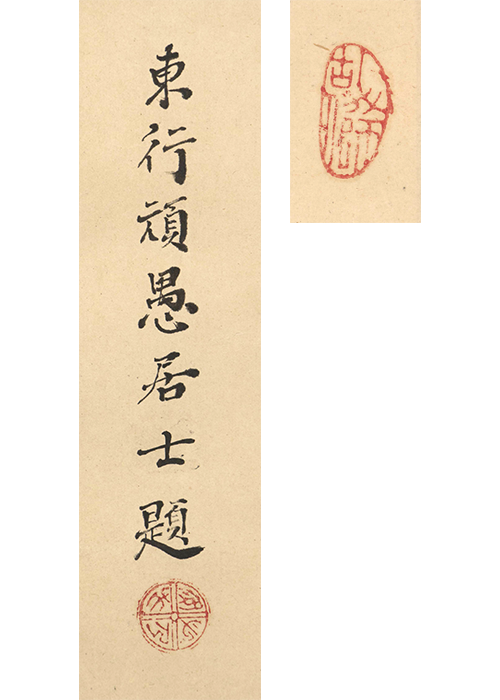 東行頑愚居士題